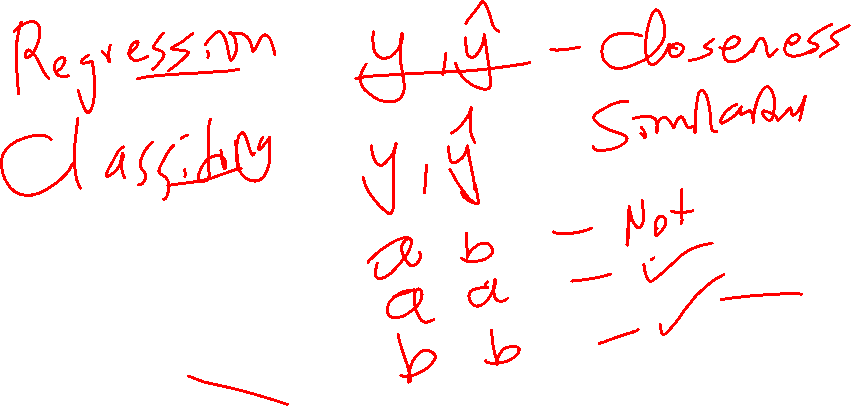 Regression y, ŷ - Closeness
Similarity
Classifying y, ŷ
a b - Not
a a - ✓
b b - ✓ -